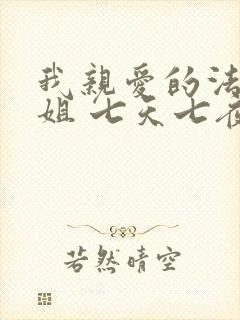 我親愛的法
姐 七天七夜
若然晴空